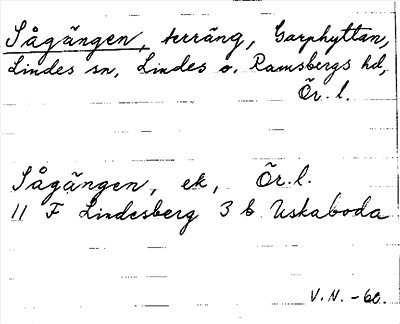 Sågängen, terräng, Garphyttan,
Lindes sn, Lindes o. Ramsbergs hd,
Ör. l.
Sågängen, ek, Ör. l.
11 F Lindesberg 3 b Uskaboda
V. N. - 60.